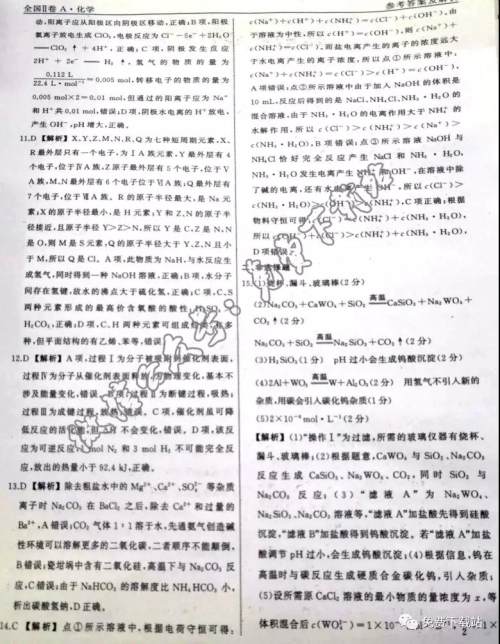 全国Ⅱ卷 A·化学
动,阳离子应从阳极区向阴极区移动,正确;B项,阳极
氯离子放电生成 ClO₂,电极反应为 Cl⁻−5e⁻+2H₂O
══ClO₂↑+4H⁺,正确;C项,阴极发生反应
2H⁺+2e⁻══H₂↑,氢气的物质的量为
0.112 L
22.4 L·mol⁻¹=0.005 mol,转移电子的物质的量为
0.005 mol×2=0.01 mol,但通过的阳离子应为 Na⁺
和 H⁺共0.01 mol,错误;D项,阴极水电离的 H⁺放电,
产生 OH⁻,pH增大,正确。
11.D 【解析】X、Y、Z、M、N、R、Q 为七种短周期元素,X、
R最外层只有一个电子,为ⅠA族元素,Y最外层有4
个电子,位于ⅣA族,Z原子最外层有5个电子,位于Ⅴ
A族,M、N最外层有6个电子位于ⅥA族;Q最外层有
7个电子,位于ⅦA族。R的原子半径最大,是Na元
素;X的原子半径最小,是H元素;Y和Z、N的原子半
径接近,且原子半径Y>Z>N,所以Y是C,Z是N,N
是O,则M是S元素,Q的原子半径大于Y、Z、N,且小
于M,所以Q是Cl。A项,此物质为NaH,与水反应生
成氢气,同时得到一种NaOH溶液,正确;B项,水分子
间存在氢键,故水的沸点大于硫化氢,正确;C项,C、S
两种元素形成的最高价含氧酸的酸性:H₂SO₄
H₂CO₃,正确;D项,C、H两种元素可组成烃类,有多
种,但平面结构的有乙烯、苯等,错误。
12.D 【解析】A项,过程Ⅰ为分子被吸附到催化剂表面,
过程Ⅳ为分子从催化剂表面释放,为物理变化,基本不
涉及能量变化,错误。B项,过程Ⅱ为断键过程,吸热;
过程Ⅲ为成键过程,放热,错误。C项,催化剂虽可降
低反应的活化能,但ΔH不会变化,错误。D项,该反
应为可逆反应,1 mol N₂ 和 3 mol H₂ 不可能完全反
应,放出的热量小于 92.4 kJ,正确。
13.D 【解析】除去粗盐水中的 Mg²⁺、Ca²⁺、SO₄²⁻ 等杂质
离子时 Na₂CO₃ 在 BaCl₂ 之后,除去 Ca²⁺ 和过量的
Ba²⁺,A错误;CO₂气体1:1溶于水,先通氨气创造碱
性环境可以溶解更多的二氧化碳,二者顺序不能颠倒,
B错误;瓷坩埚中含有二氧化硅,高温下与 Na₂CO₃ 反
应,C错误;由于 NaHCO₃ 的溶解度比 NH₄HCO₃ 小,
析出碳酸氢钠,D正确。
14.C 【解析】点①所示溶液中,根据电荷守恒可得:
c(Na⁺)+c(H⁺)+c(NH₄⁺)=c(Cl⁻)+c(OH⁻),由
于溶液为中性,所以 c(H⁺)=c(OH⁻),则 c(Na⁺)+
c(NH₄⁺)=c(Cl⁻),而盐电离产生的离子的浓度远大
于水电离产生的离子的浓度,所以点①所示溶液中:
c(Na⁺)+c(NH₄⁺)=c(Cl⁻)>c(H⁺)=c(OH⁻),
A项错误;点②所示溶液中由于加入NaOH的体积是
10 mL,反应后得到的是 NaCl、NH₄Cl、NH₃·H₂O的
混合溶液,由于 NH₃·H₂O的电离作用大于 NH₄⁺ 的
水解作用,所以 c(Cl⁻)>c(NH₄⁺)>c(Na⁺)>
c(NH₃·H₂O),B项错误;点③所示溶液 NaOH 与
NH₄Cl 恰好完全反应产生 NaCl 和 NH₃·H₂O,
NH₃·H₂O发生电离产生 NH₄⁺ 和 OH⁻,在溶液中除
了碱的电离,还有水
c(NH₃·H₂O)>c(OH⁻)>c(NH₄⁺),C项正确;根据
物料守恒可得:c(Cl⁻)=c(NH₄⁺)+c(NH₃·H₂O),
所以
D项错误。
非选择题
15.(1)烧杯、漏斗、玻璃棒(2分)
(2)Na₂CO₃+CaWO₄+SiO₂ 高温══ CaSiO₃+Na₂WO₄+
CO₂↑(2分)
Na₂CO₃+SiO₂ 高温══ Na₂SiO₃+CO₂↑(2分)
(3)H₂SiO₃(1分) pH过小会生成钨酸沉淀(2分)
(4)2Al+WO₃ 高温══ W+Al₂O₃(2分) 用氢气不引入新的
杂质,用碳会引入碳化钨杂质(1分)
(5)2×10⁻⁶mol·L⁻¹(2分)
【解析】(1)“操作Ⅰ”为过滤,所需的玻璃仪器有烧杯、
漏斗、玻璃棒;(2)根据题意,CaWO₄ 与 SiO₂、Na₂CO₃
反应生成 CaSiO₃、Na₂WO₄、CO₂,同时 SiO₂ 与
Na₂CO₃ 反应;(3)“滤液A”为 Na₂WO₄、
Na₂SiO₃、Na₂CO₃ 溶液等,“滤液A”加盐酸先得到硅酸
沉淀,“滤液B”加盐酸得到钨酸沉淀。若“滤液A”加盐
酸调节pH过小,会生成钨酸沉淀;(4)根据信息,钨在
高温时与碳反应生成硬质合金碳化钨,引入杂质;
(5)设所需原 CaCl₂ 溶液的最小物质的量浓度为 x,等
体积混合后 c(WO₄²⁻)=1×10
免费下载站
2